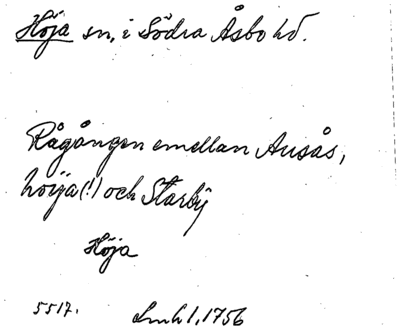 Höja sn, i Södra Åsbo hd.
Rågången emellan Ausås,
höija(!) och Starby
Höja
5517. Lmh 1, 1756